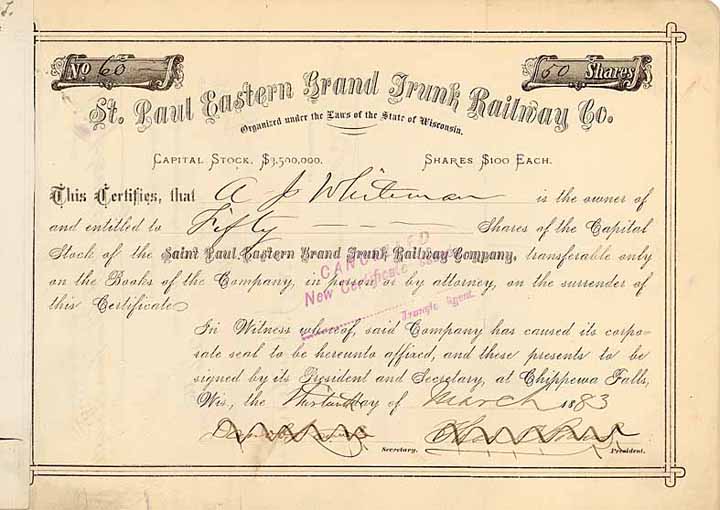 No 60
50 Shares
St. Paul Eastern Grand Trunk Railway Co.
Organized under the Laws of the State of Wisconsin.
CAPITAL STOCK, $3,500,000. SHARES $100 EACH.
This Certifies, that A J Whiteman is the owner of
and entitled to Fifty Shares of the Capital
Stock of the Saint Paul Eastern Grand Trunk Railway Company, transferable only
on the Books of the Company, in person or by attorney, on the surrender of
this Certificate
CANCELLED
New Certificate Issued
Transfer Agent.
In Witness whereof, said Company has caused its corpo-
rate seal to be hereunto affixed, and these presents to be
signed by its President and Secretary, at Chippewa Falls,
Wis, the day of March 1883
Secretary. President.